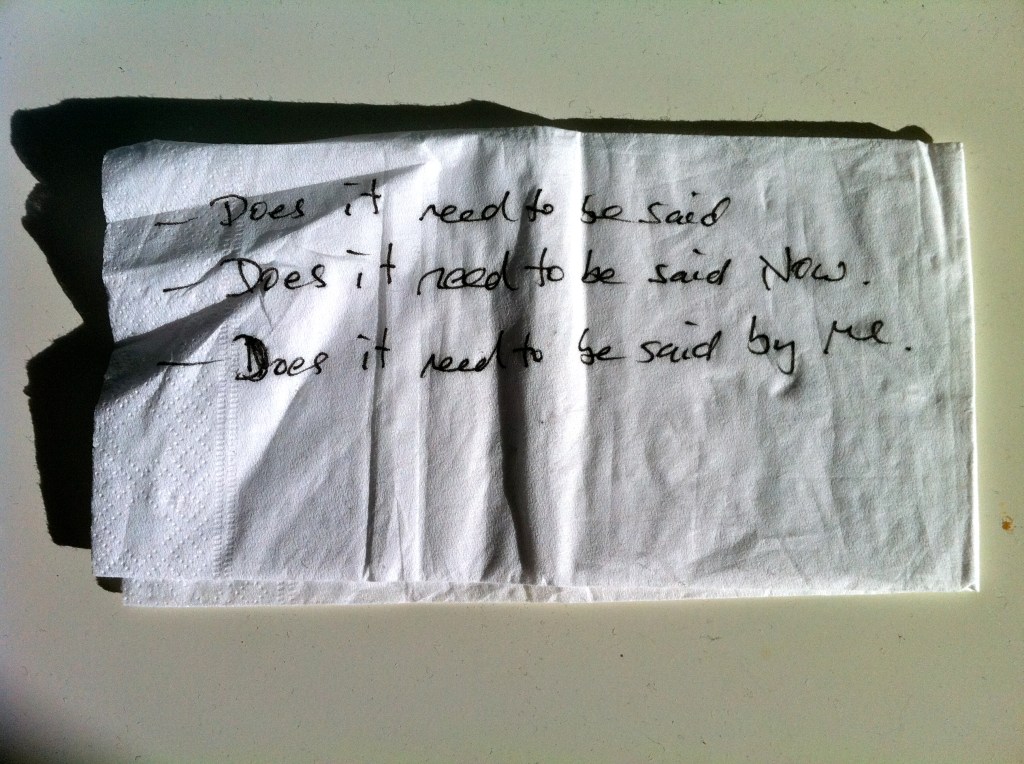 – Does it need to be said
– Does it need to be said Now.
– Does it need to be said by me.